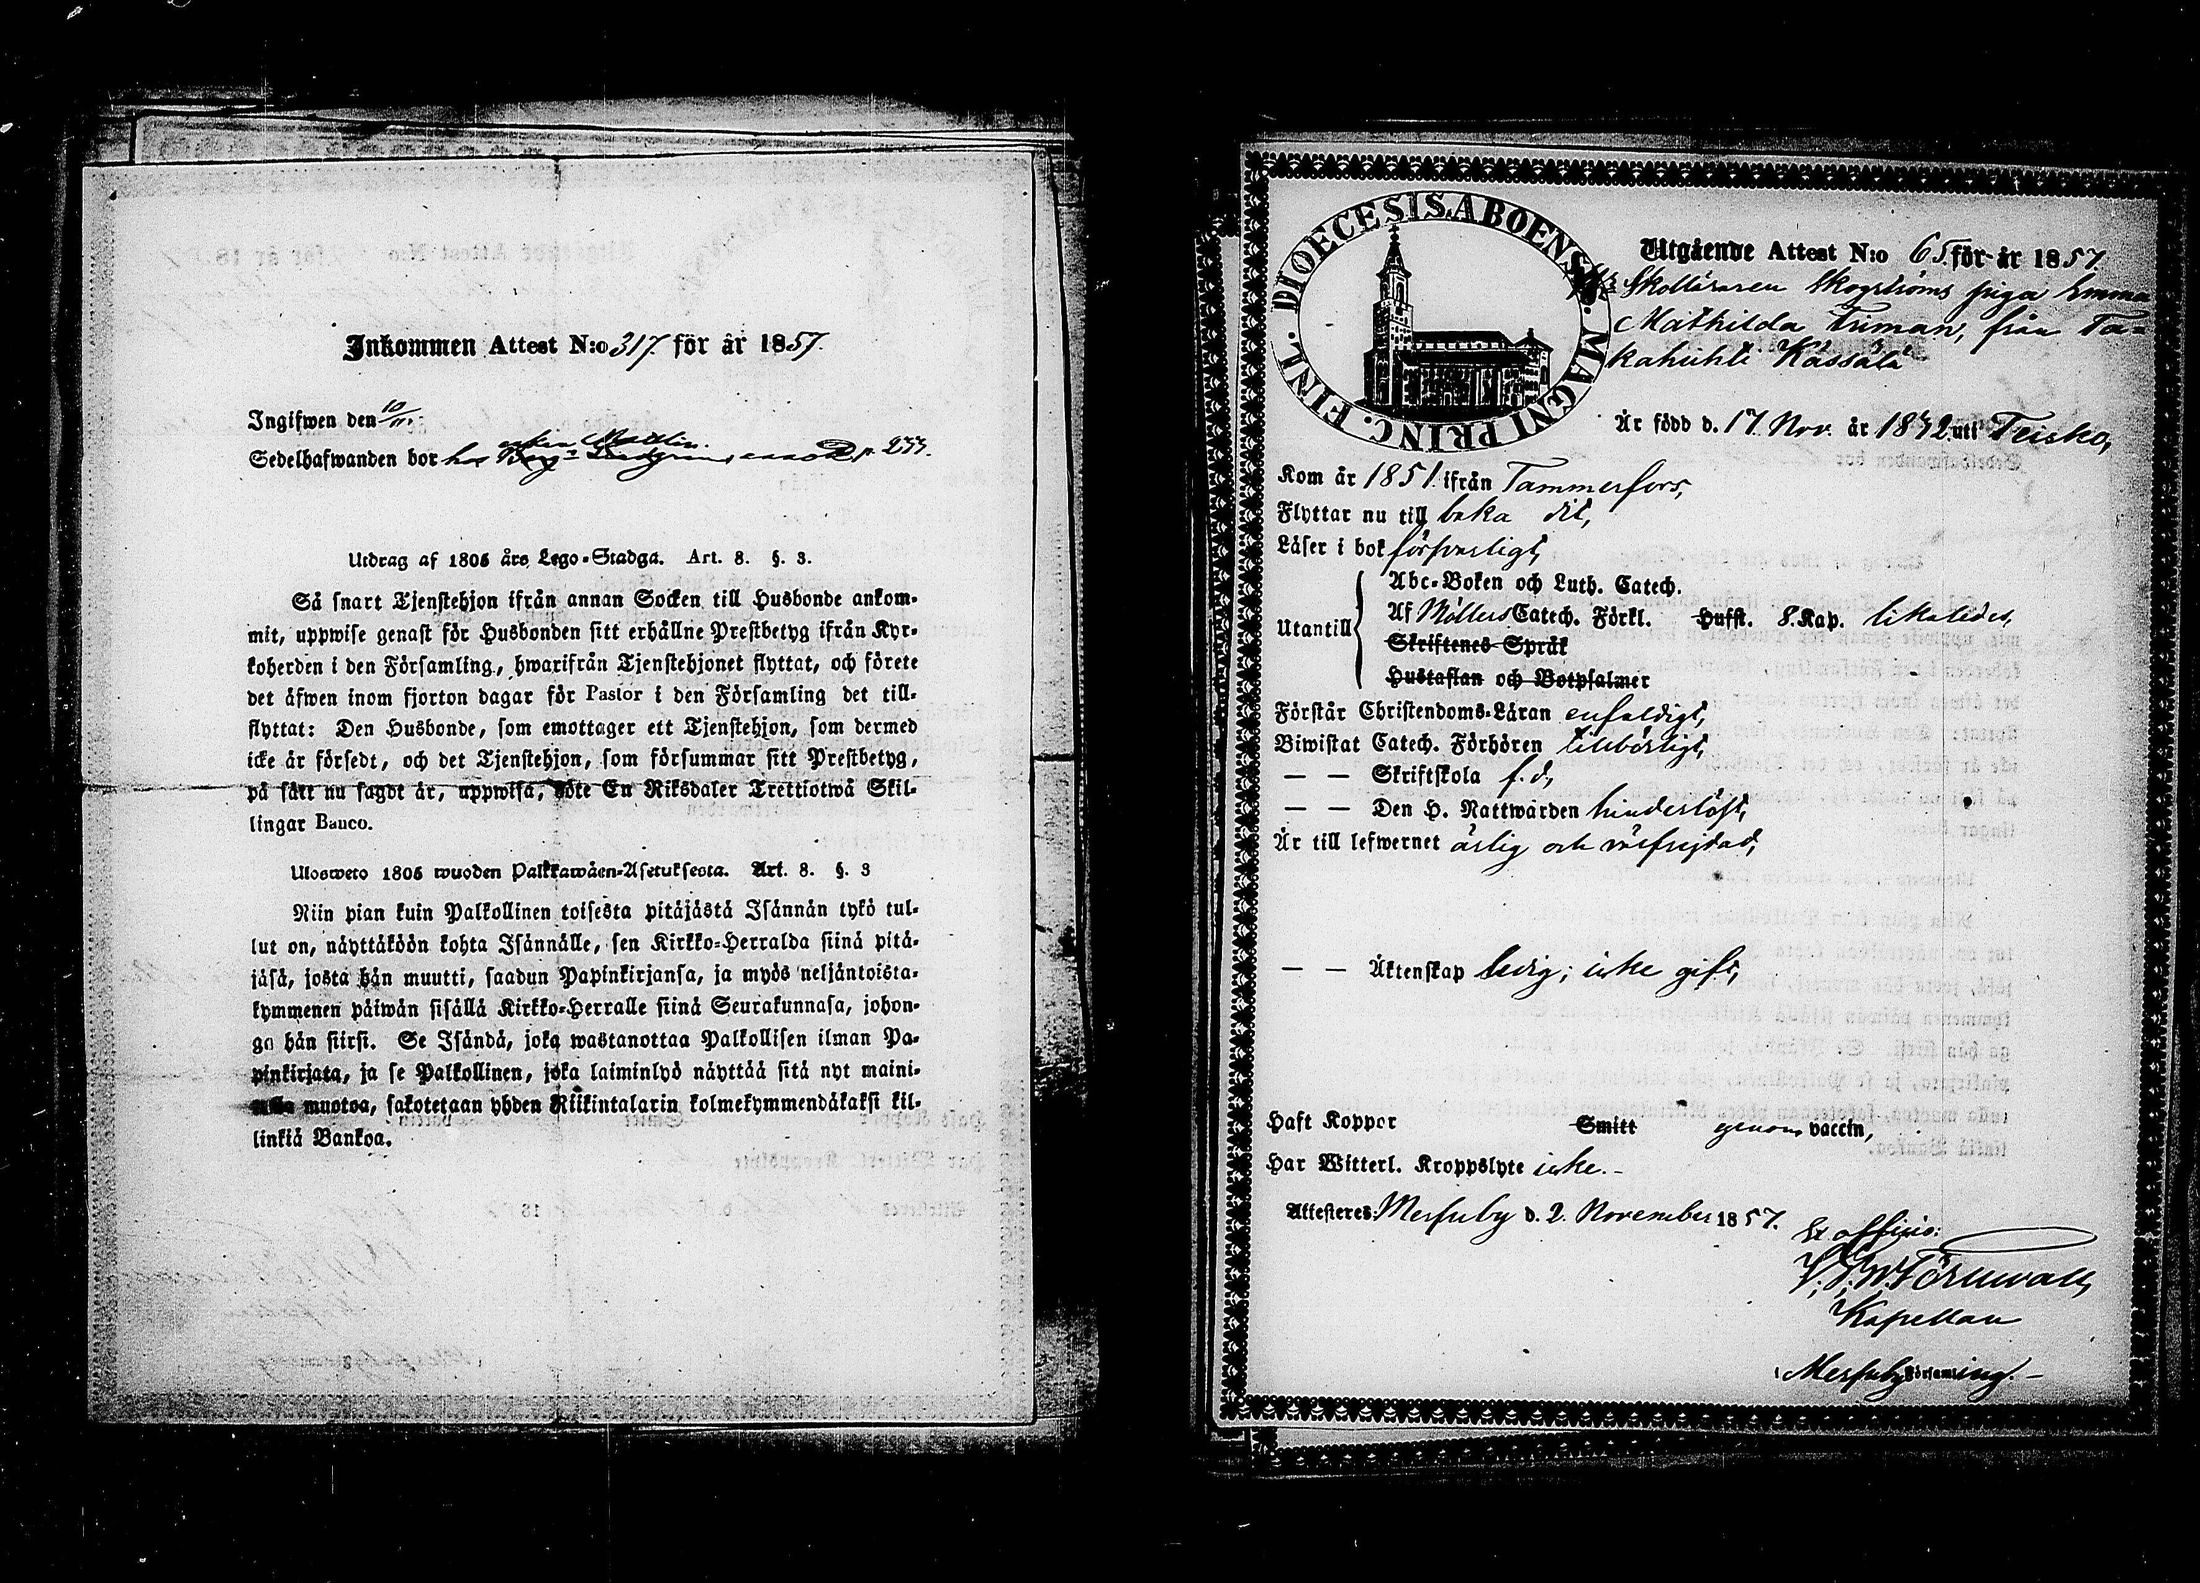 Inkommen Attest N:o 317. för år 1857.
Ingifwen den 10/11.
enkan Mattlin.
Sedelhafwanden bor hos p. 233.
Utdrag af 1805 års Lego-Stadga. Art. 8. §. 3.
Så snart Tjenstehjon ifrån annan Socken till Husbonde ankom-
mit, uppwise genast för Husbonden sitt erhållne Prestbetyg ifrån Kyr-
koherden i den Församling, hwarifrån Tjenstehjonet flyttat, och förete
det äfwen inom fjorton dagar för Pastor i den Församling det till-
flyttat: Den Husbonde, som emottager ett Tjenstehjon, som dermed
icke är försedt, och det Tjenstehjon, som försummar sitt Prestbetyg,
på sätt nu sagdt är, uppwisa, böte En Riksdaler Trettiotwå Skil-
lingar Banco.
Ulosweto 1805 wuoden Palkkawäen-Asetuksesta. Art. 8. §. 3
Niin pian kuin Palkollinen toisesta pitäjästä Isännän tykö tul-
lut on, näyttäköön kohta Isännälle, sen Kirkko-Herralda siinä pitä-
jäsä, josta hän muutti, saadun Papinkirjansa, ja myös neljäntoista-
kymmenen päiwän sisällä Kirkko-Herralle siinä Seurakunnasa, johon-
ga hän siirsi. Se Isändä, joka wastanottaa Palkollisen ilman Pa-
pinkirjata, ja se Palkollinen, joka laiminlyö näyttää sitä nyt maini-
muotoa, sakotetaan yhden Riikintalarin kolmekymmendäkaksi kil-
linkiä Bankoa.
DIOECESIS ABOENSIS. MAGNI PRINC. FINL.
Utgående Attest N:o 65. för år 1857.
Skolläraren Skogströms piga Emma
Mathilda Triman, från Ta-
kahuhti Kässälä
Är född d. 17. Nov. år 1832 uti Teisko,
Kom år 1851. ifrån Tammerfors,
Flyttar nu till baka dit,
Läser i bok försvarligt,
Utantill
Abc-Boken och Luth. Catech.
Af Möllers Catech. Förkl. Hufst. 8. Kap. likaledes,
Skriftenes Språk
Hustaflan och Botpsalmer
Förstår Christendoms-Läran enfaldigt,
Biwistat Catech. Förhören tillbörligt,
— — Skriftskola f. d,
— — Den H. Nattwarden hinderlöst,
Är till lefwernet ärlig och välfrejdad,
— — Äktenskap ledig; icke gift,
Haft Koppor Smitt genom vaccin,
Har Witterl. Kroppslyte icke. -
Attesteres: Messuby d. 2. November 1857.
Ex officio:
Törnwall,
Kapellan
i Messuby Församling. -